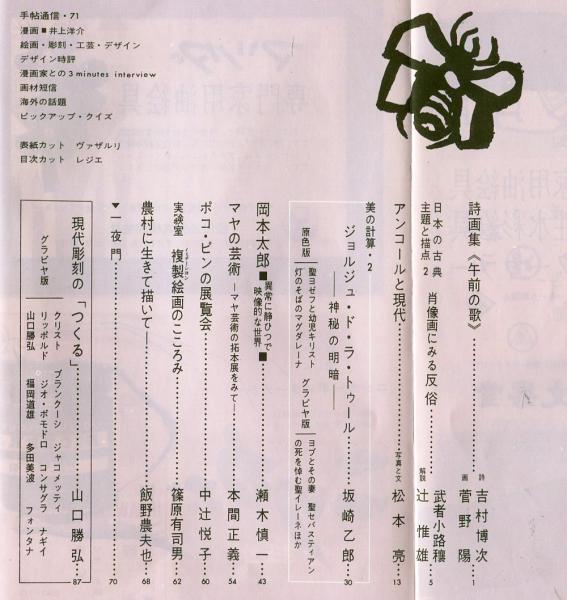 手帖通信・71
漫画■井上洋介
絵画・彫刻・工芸・デザイン
デザイン時評
漫画家との3 minutes interview
画材短信
海外の話題
ピックアップ・クイズ
表紙カット ヴァザルリ
目次カット レジエ
詩画集《午前の歌》………詩 吉村博次
画 菅野陽 1
日本の古典
主題と描点 2 肖像画にみる反俗………武者小路穰
解説 辻惟雄 5
アンコールと現代………写真と文 松本亮 13
美の計算・2
ジョルジュ・ド・ラ・トゥール………坂崎乙郎 30
――神秘の明暗――
原色版 聖ヨゼフと幼児キリスト
灯のそばのマグダレーナ
グラビヤ版 ヨブとその妻 聖セバスティアン
の死を悼む聖イレーネほか
岡本太郎■異常に静ひつで
映像的な世界■………瀬木慎一 43
マヤの芸術―マヤ芸術の拓本展をみて―………本間正義 54
ボコ・ビンの展覧会………中辻悦子 60
実験室 複製絵画のこころみ………篠原有司男 62
イミテーション
農村に生きて描いて―………飯野農夫也 68
▼一夜門………70
現代彫刻の「つくる」………山口勝弘 87
グラビヤ版 クリスト ブランクーシ ジャコメッティ
リッポルド ジオ・ポモドロ コンサグラ ナギイ
山口勝弘 福岡道雄 多田美波 フォンタナ